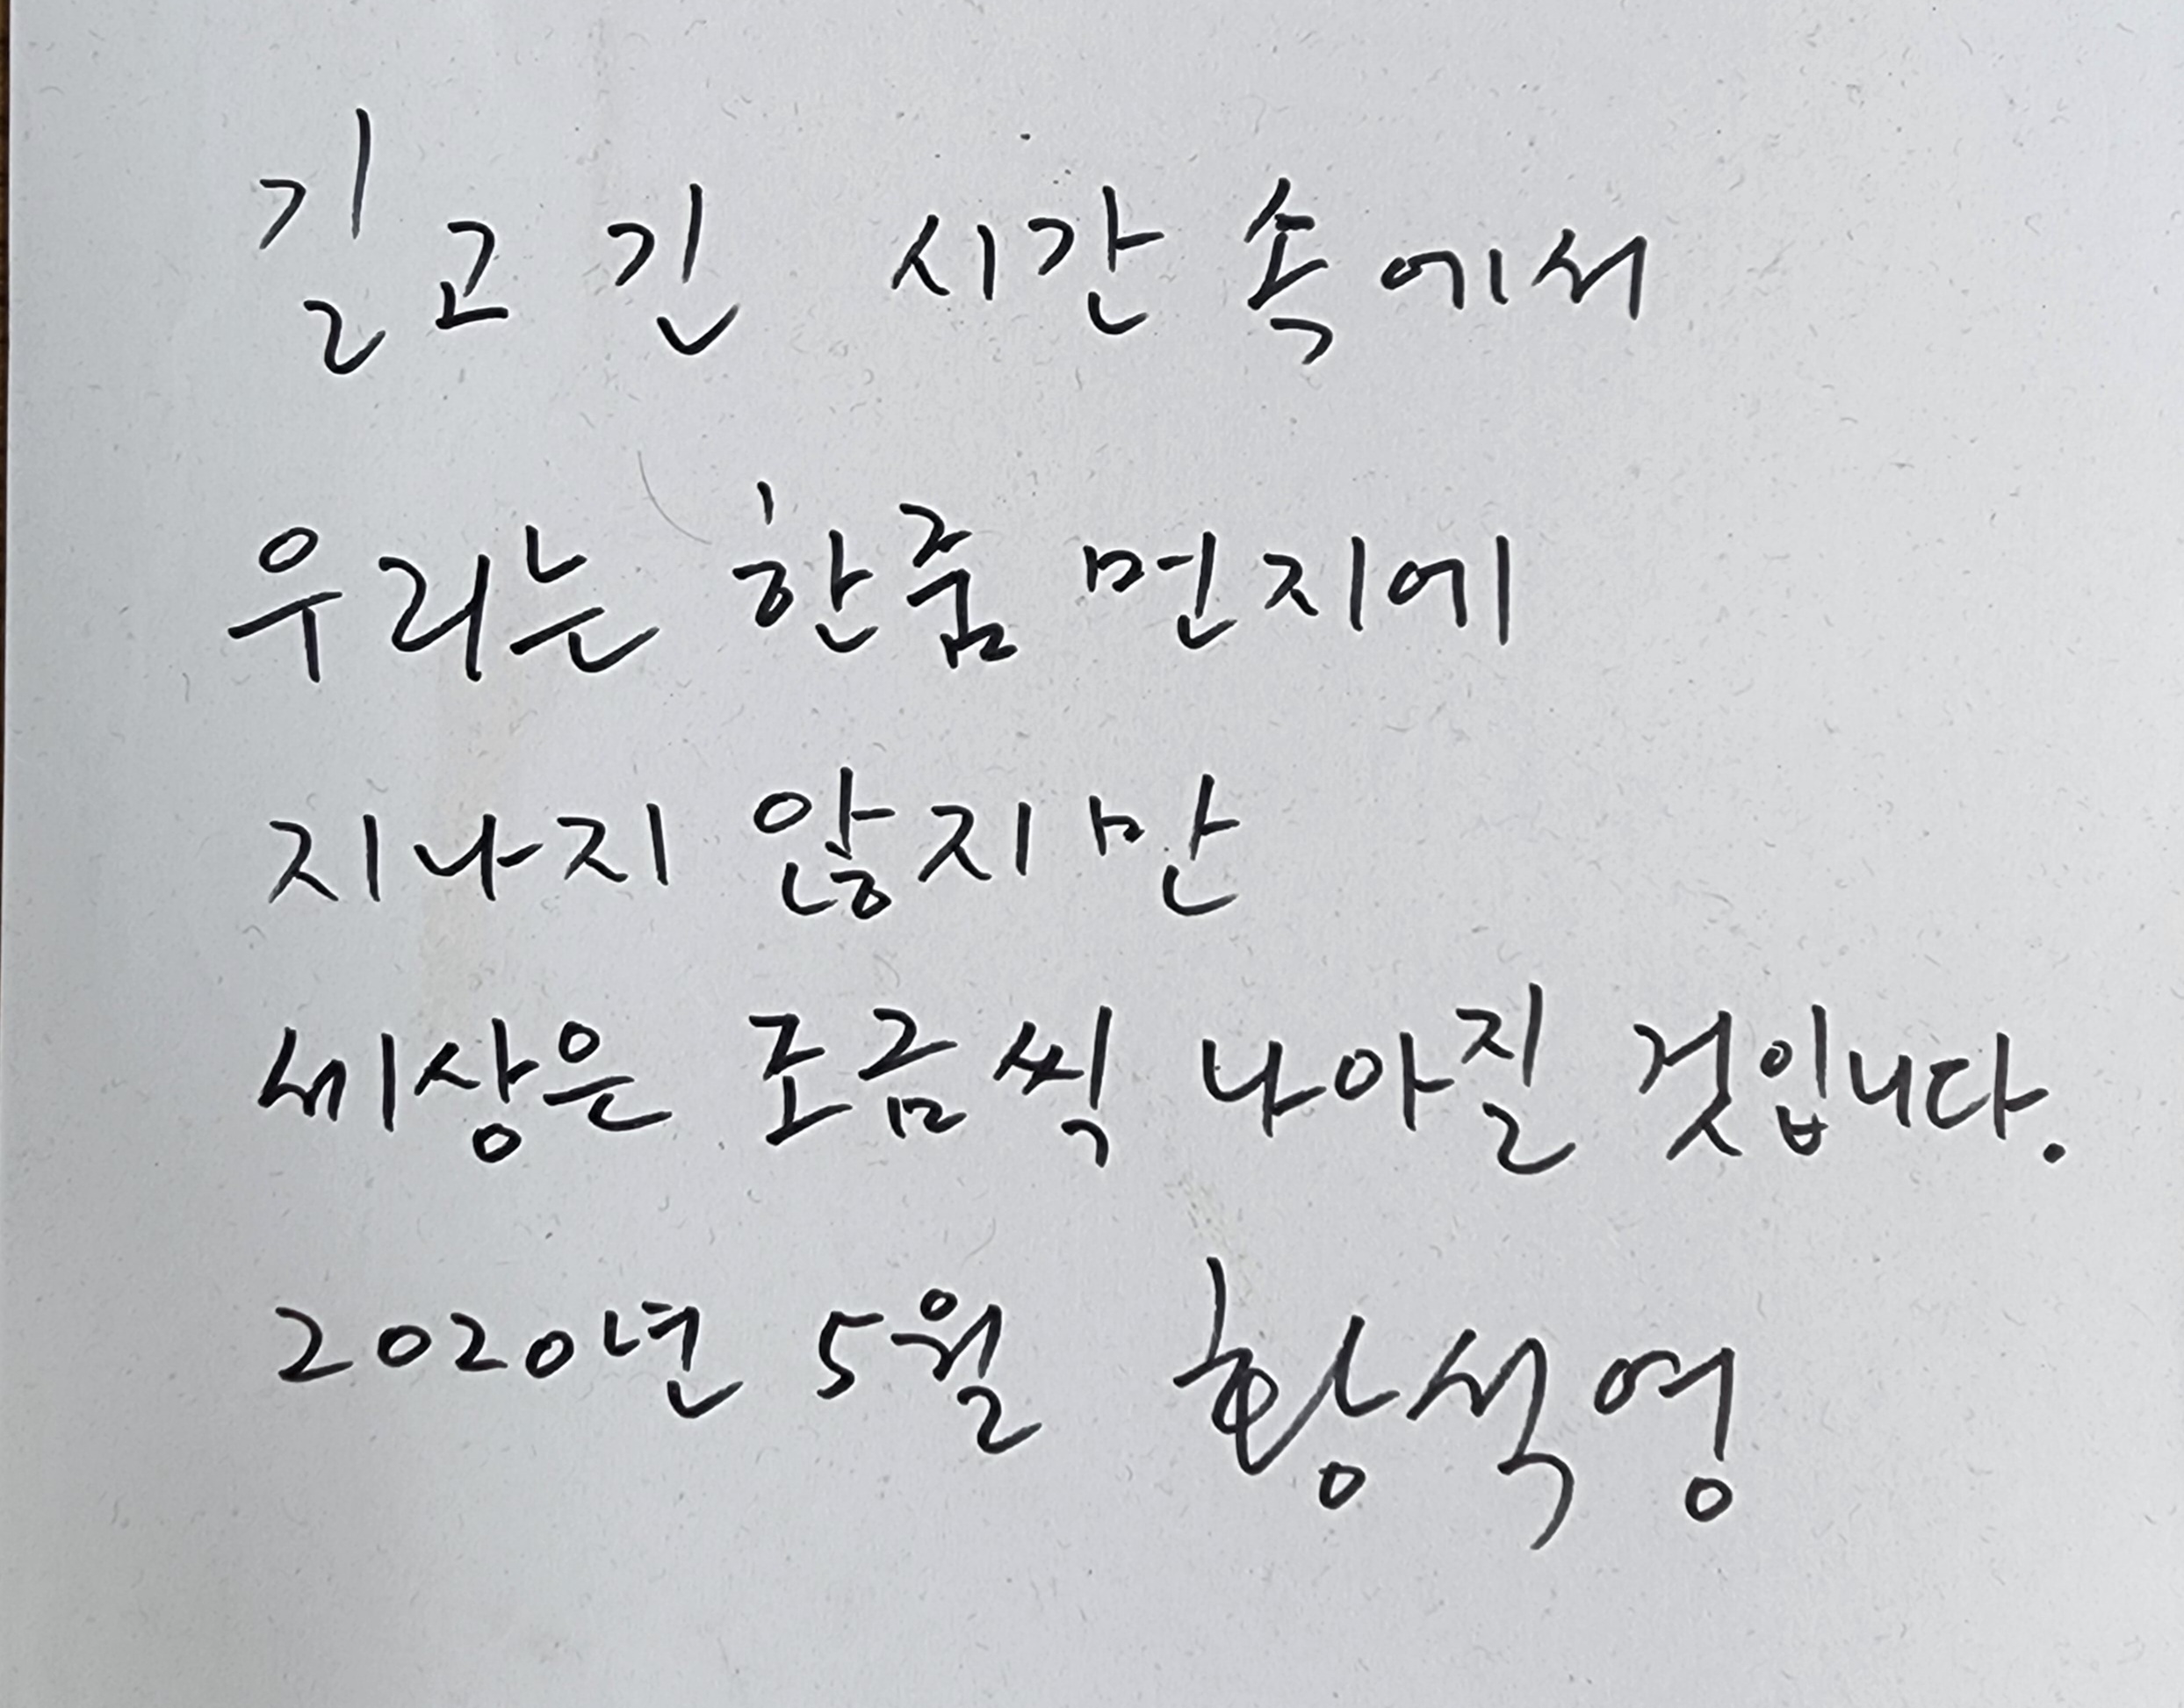 길고 긴 시간 속에서
우리는 한줌 먼지에
지나지 않지만
세상은 조금씩 나아질 것입니다.
2020년 5월 황석영